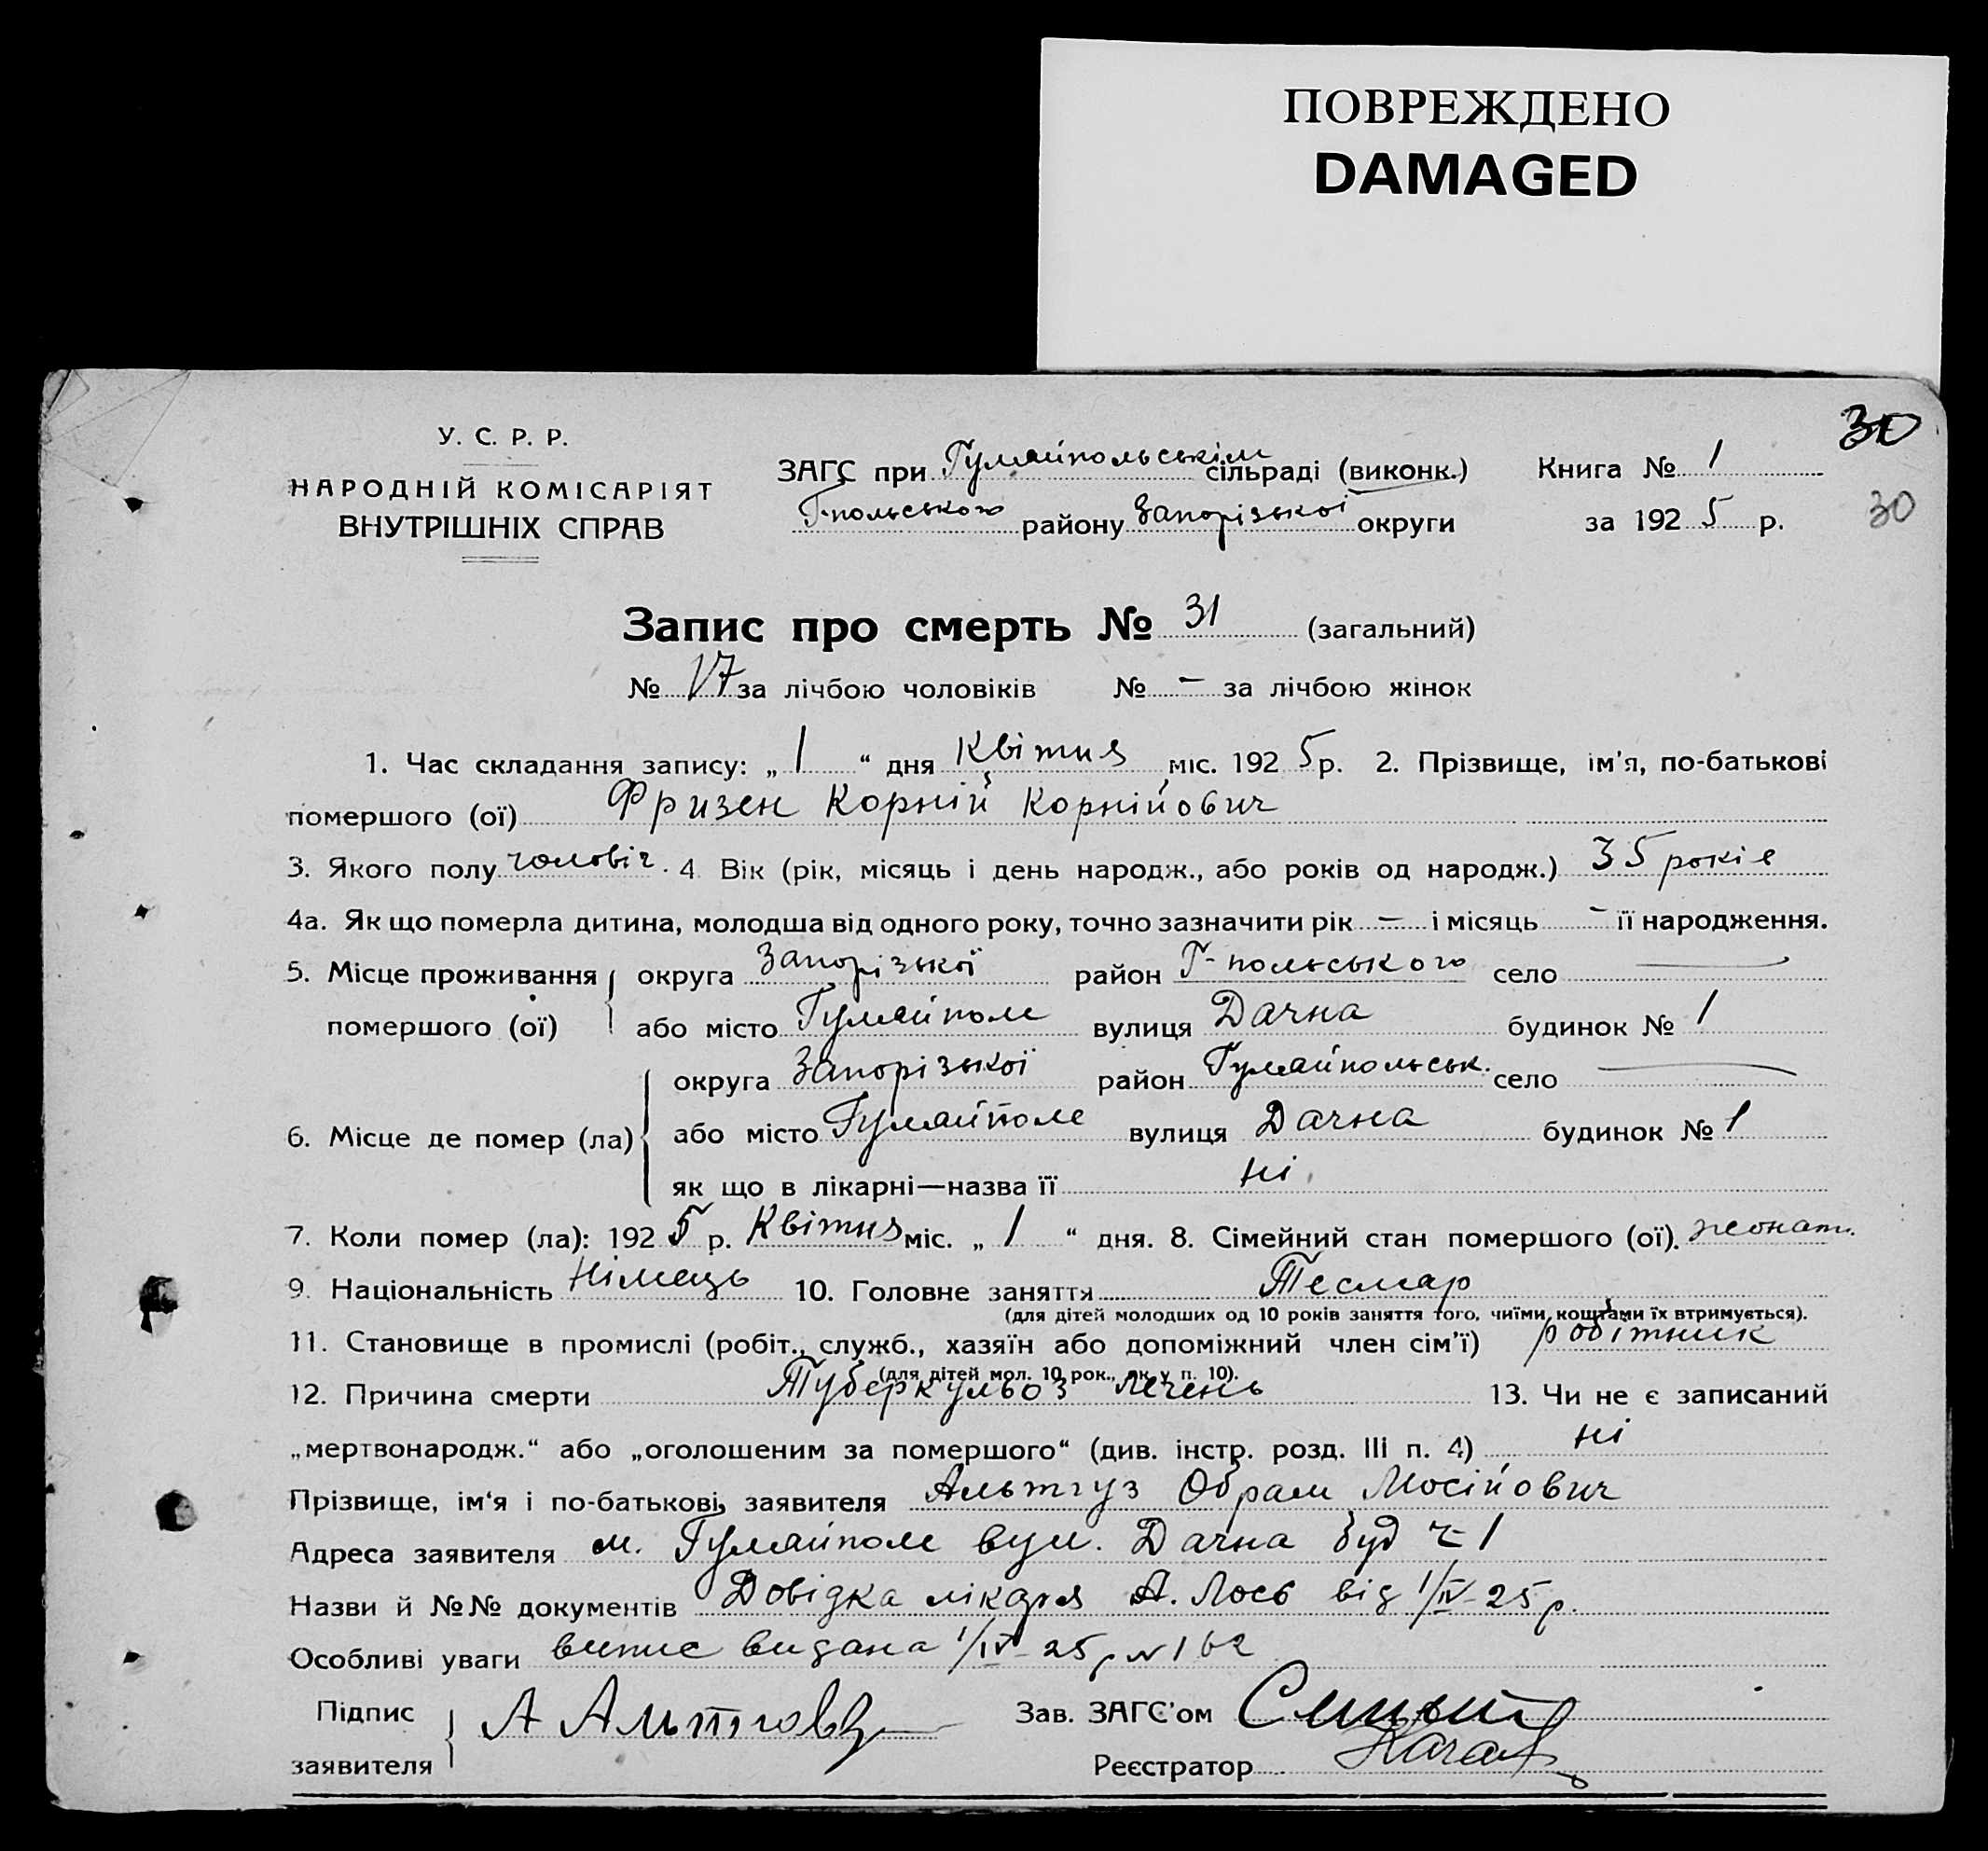 ПОВРЕЖДЕНО
DAMAGED
30
У. С. Р. Р.
НАРОДНІЙ КОМІСАРІЯТ
ВНУТРІШНІХ СПРАВ
ЗАГС при Гуляйпольськім сільраді (виконк.)
Г-польського району Запорізької округи
Книга № 1
за 1925 р.
30
Запис про смерть № 31 (загальний)
№ 17 за лічбою чоловіків № – за лічбою жінок
1. Час складання запису: „ 1 “ дня Квітня міс. 1925 р. 2. Прізвище, ім'я, по-батькові
помершого (ої) Фризен Корній Корнійович
3. Якого полу чоловіч. 4. Вік (рік, місяць і день народж., або років од народж.) 35 років
4а. Як що померла дитина, молодша від одного року, точно зазначити рік – і місяць – її народження.
5. Місце проживання помершого (ої) округа Запорізької район Г-польського село —
або місто Гуляйполе вулиця Дачна будинок № 1
6. Місце де помер (ла) округа Запорізької район Гуляйпольськ. село —
або місто Гуляйполе вулиця Дачна будинок № 1
як що в лікарні—назва її ні
7. Коли помер (ла): 1925 р. Квітня міс. „ 1 “ дня. 8. Сімейний стан помершого (ої). жонат.
9. Національність Німець 10. Головне заняття Тесляр
(для дітей молодших од 10 років заняття того, чиїми коштами їх втримується).
11. Становище в промислі (робіт., служб., хазяїн або допоміжний член сім'ї) робітник
(для дітей мол. 10 рок., як у п. 10).
12. Причина смерти Туберкульоз легень 13. Чи не є записаний
„мертвонародж.“ або „оголошеним за помершого“ (див. інстр. розд. III п. 4) ні
Прізвище, ім'я і по-батькові, заявителя Альтгуз Обрам Мосійович
Адреса заявителя м. Гуляйполе вул. Дачна буд ч 1
Назви й №№ документів Довідка лікаря А. Лось від 1/IV-25 р.
Особливі уваги випис видана 1/IV-25 р №162
Підпис заявителя А Альтговз
Зав. ЗАГС'ом
Реєстратор